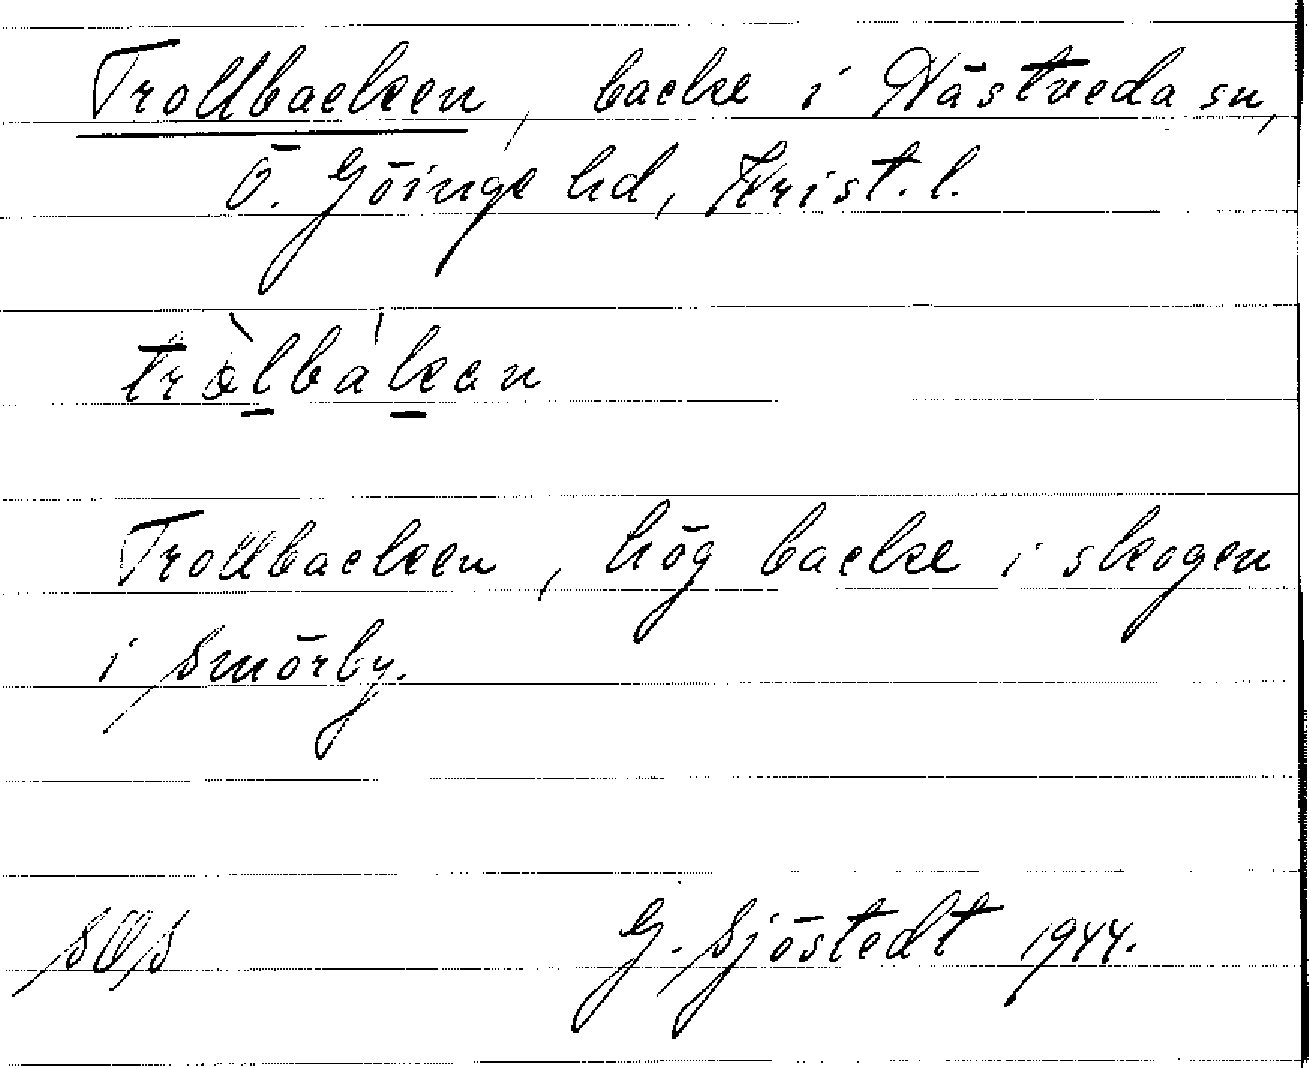 Trollbacken, backe i Nästveda sn,
Ö. Göinge hd, Krist. l.
tròlbákan
Trollbacken, hög backe i skogen
i Smörby.
SOS G. Sjöstedt 1944.